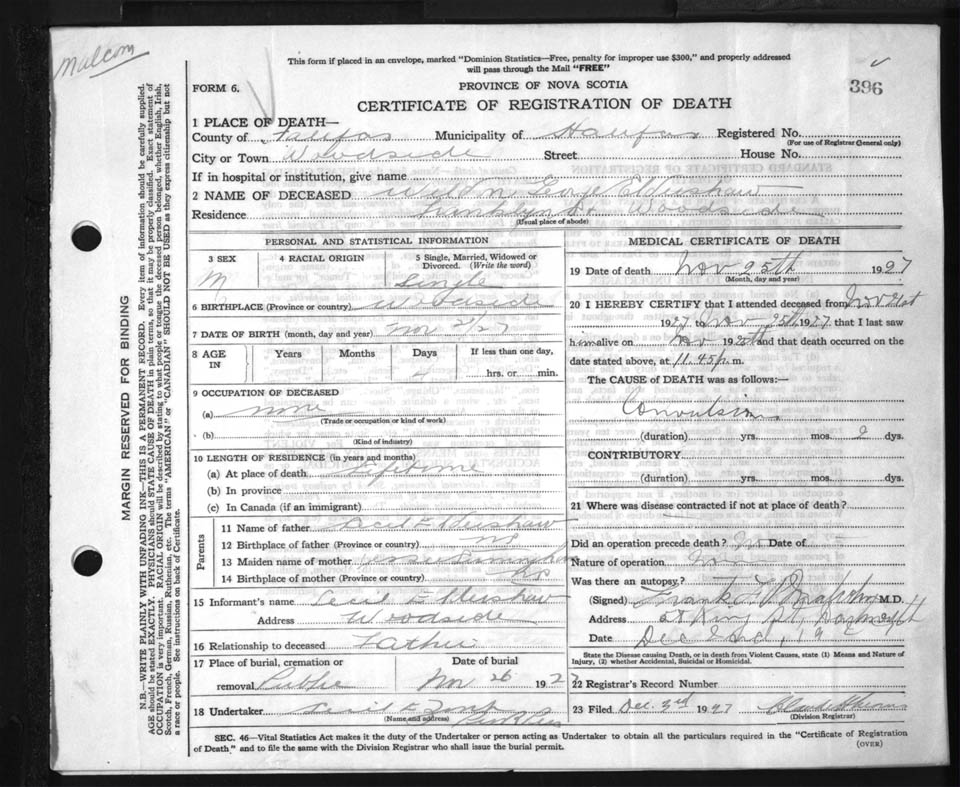 Malcom
This form if placed in an envelope, marked "Dominion Statistics—Free, penalty for improper use $300," and properly addressed
will pass through the Mail "FREE"
FORM 6.
PROVINCE OF NOVA SCOTIA
396
CERTIFICATE OF REGISTRATION OF DEATH
1 PLACE OF DEATH—
County of Halifax Municipality of Halifax Registered No.
(For use of Registrar General only)
City or Town Woodside Street House No.
If in hospital or institution, give name
2 NAME OF DECEASED George
Residence St Woodside
(Usual place of abode)
PERSONAL AND STATISTICAL INFORMATION
3 SEX
M
4 RACIAL ORIGIN
5 Single, Married, Widowed or
Divorced. (Write the word)
Single
6 BIRTHPLACE (Province or country) Woodside
7 DATE OF BIRTH (month, day and year) Nov 21/27
8 AGE IN Years Months Days If less than one day,
4 hrs. or min.
9 OCCUPATION OF DECEASED
(a) none
(Trade or occupation or kind of work)
(b)
(Kind of industry)
10 LENGTH OF RESIDENCE (in years and months)
(a) At place of death Lifetime
(b) In province
(c) In Canada (if an immigrant)
Parents
11 Name of father Cecil
12 Birthplace of father (Province or country) NS
13 Maiden name of mother
14 Birthplace of mother (Province or country) NS
15 Informant's name Cecil
Address Woodside
16 Relationship to deceased Father
17 Place of burial, cremation or
removal Public
Date of burial
Nov 26 1927
18 Undertaker Cecil
(Name and address)
MEDICAL CERTIFICATE OF DEATH
19 Date of death Nov 25th 1927
(Month, day and year)
20 I HEREBY CERTIFY that I attended deceased from Nov 21st
1927 to Nov 25th 1927, that I last saw
him alive on Nov 1925th and that death occurred on the
date stated above, at 11.45 p.m.
The CAUSE of DEATH was as follows:—
Convulsion
(duration) yrs. mos. 2 dys.
CONTRIBUTORY
(duration) yrs. mos. dys.
21 Where was disease contracted if not at place of death?
Did an operation precede death? Date of
Nature of operation
Was there an autopsy?
(Signed) Frank M.D.
Address King St,
Date Dec 2nd, 19
State the Disease causing Death, or in death from Violent Causes, state (1) Means and Nature of
Injury, (2) whether Accidental, Suicidal or Homicidal.
22 Registrar's Record Number
23 Filed Dec. 3rd 1927
(Division Registrar)
SEC. 46—Vital Statistics Act makes it the duty of the Undertaker or person acting as Undertaker to obtain all the particulars required in the "Certificate of Registration
of Death," and to file the same with the Division Registrar who shall issue the burial permit.
(OVER)
MARGIN RESERVED FOR BINDING
N.B.—WRITE PLAINLY WITH UNFADING INK—THIS IS A PERMANENT RECORD. Every item of information should be carefully supplied.
AGE should be stated EXACTLY. PHYSICIANS should STATE CAUSE OF DEATH in plain terms, so that it may be properly classified. Exact statement of
OCCUPATION is very important. RACIAL ORIGIN will be described by stating to what people or tongue the deceased person belonged, whether English, Irish,
Scotch, French, German, Russian, Ruthenian, etc. The terms "AMERICAN" or "CANADIAN" SHOULD NOT BE USED as they express citizenship but not
a race or people. See instructions on back of Certificate.